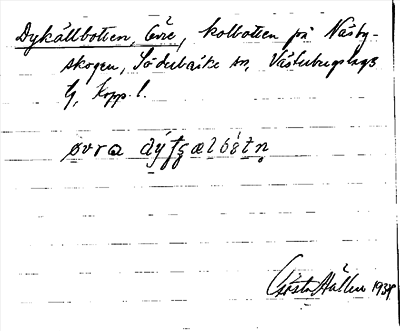 Dykällbotten, Övre, kolbotten på Näsby-
skogen, Söderbärke sn, Västerbergslags
tg, Kopp. l.
øvra dýʃʃælbótn̥
Gösta Hållen 1939